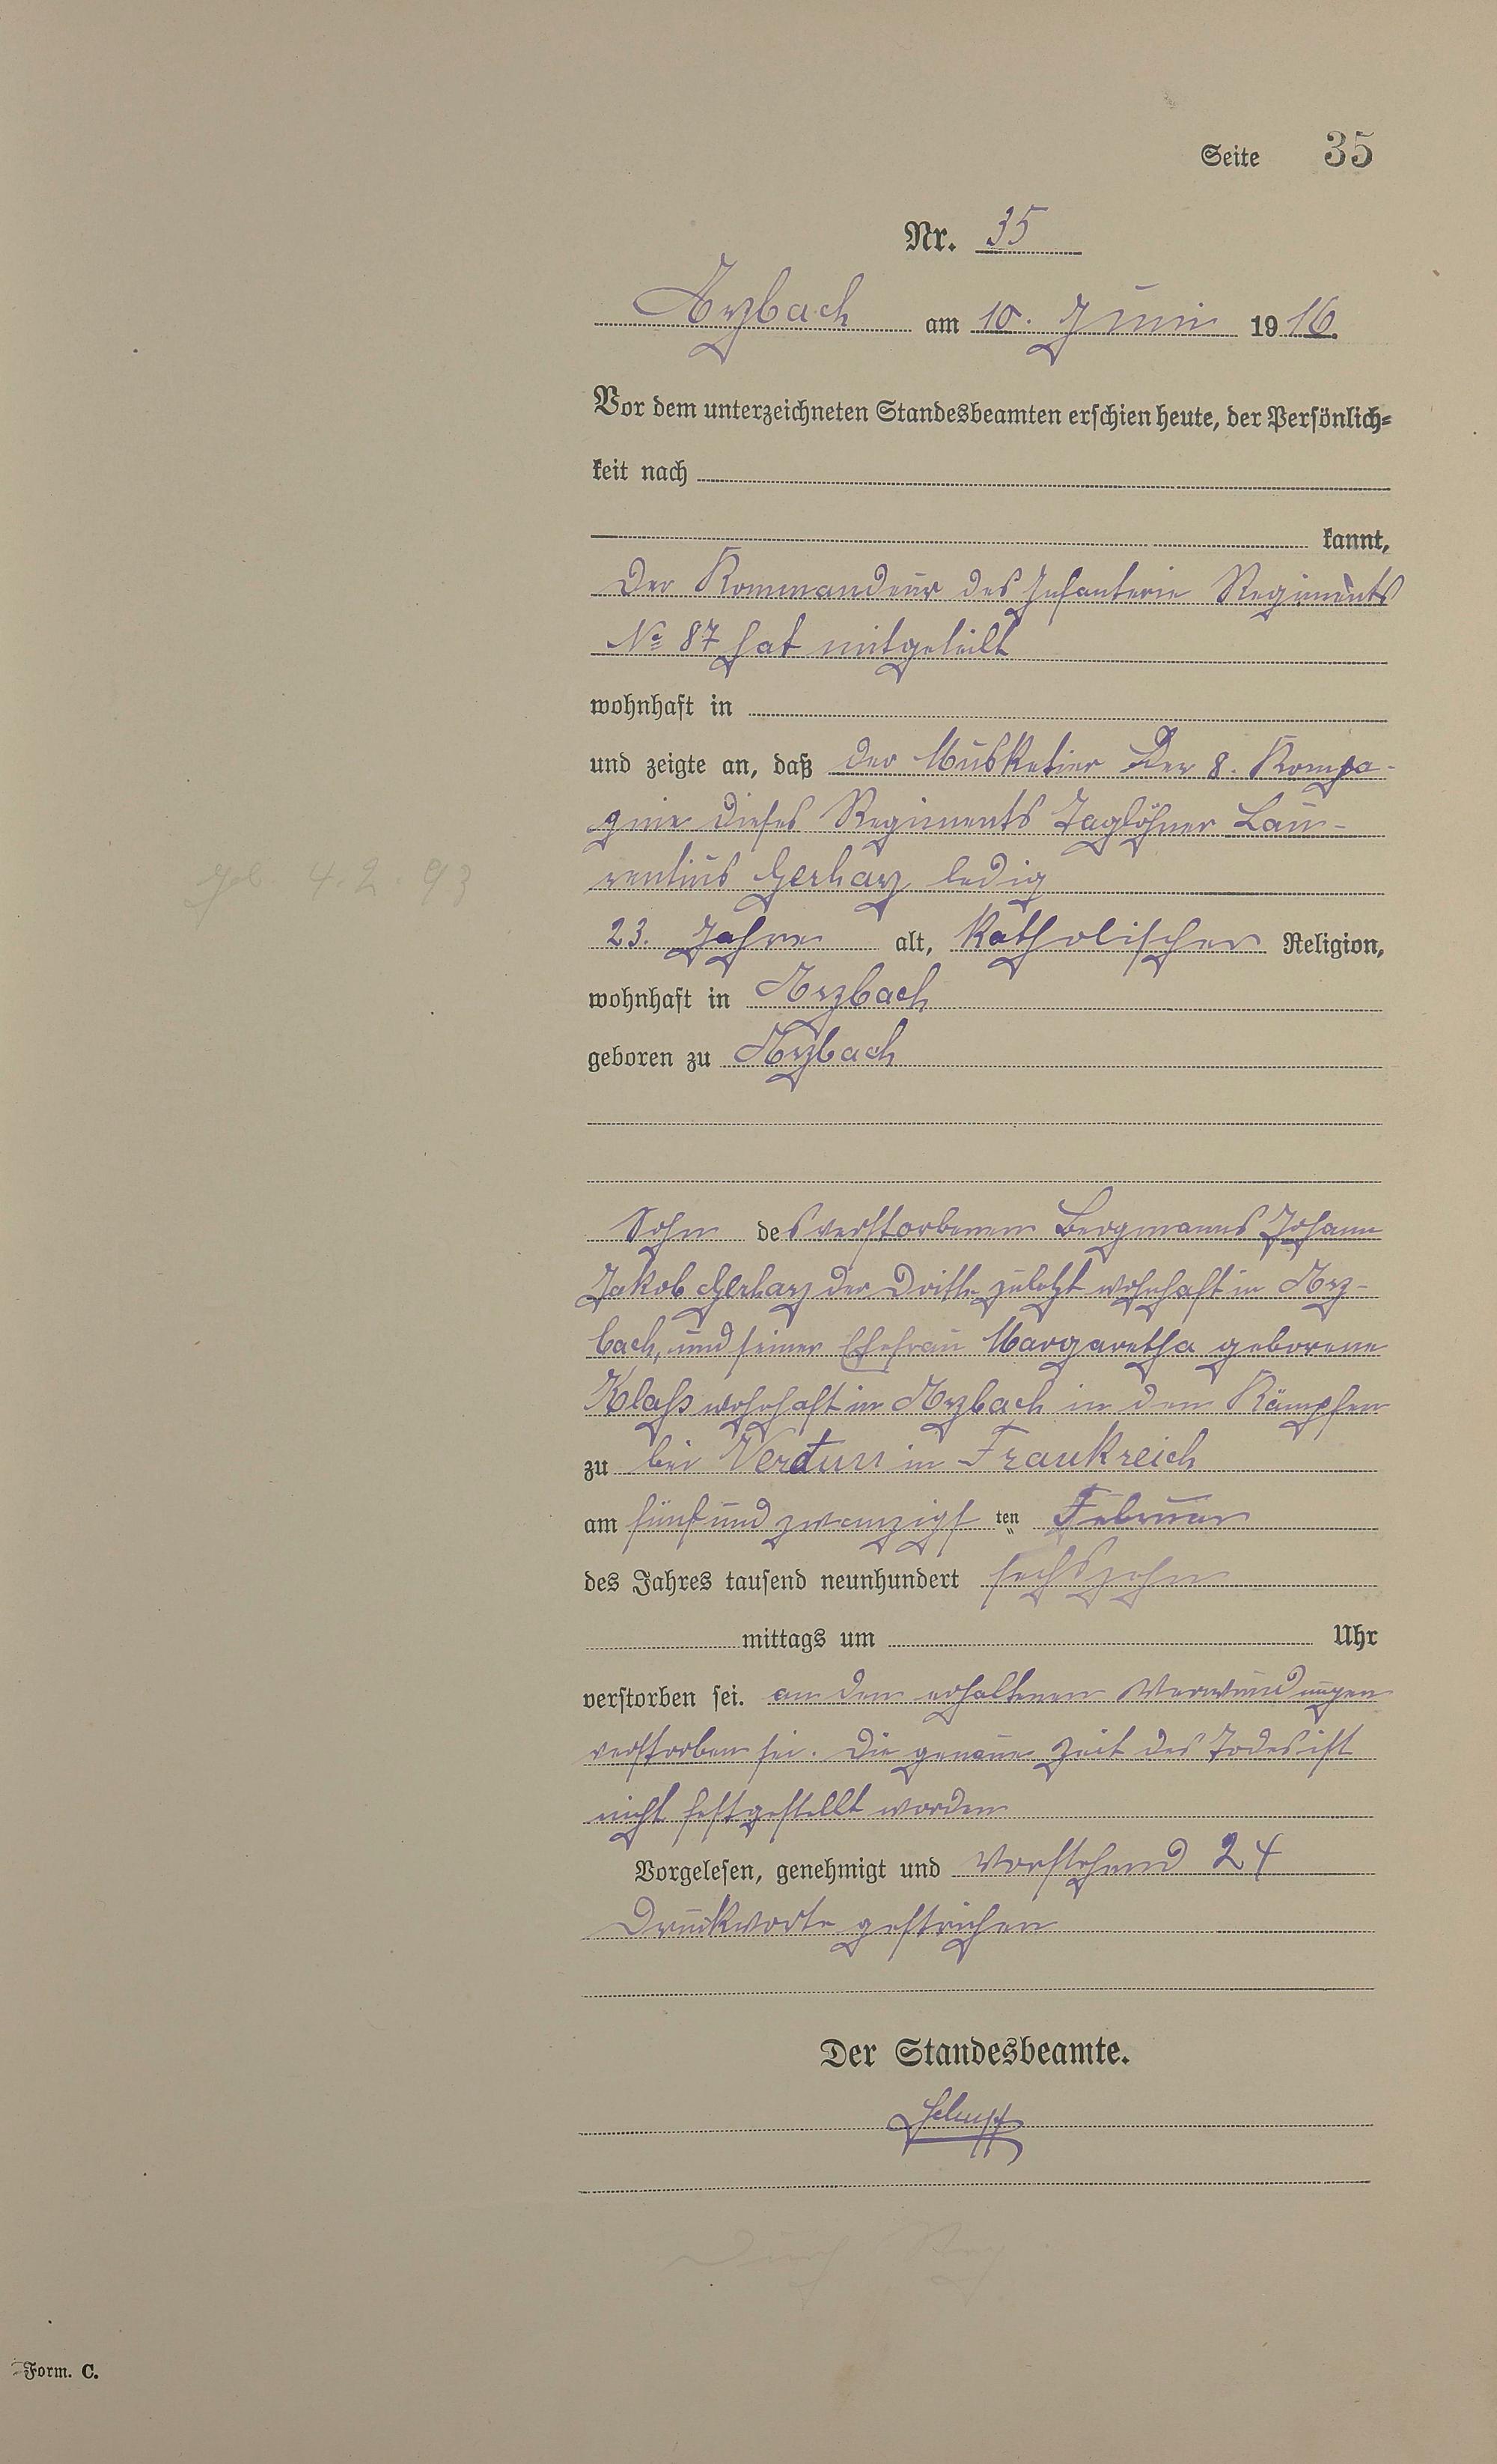 Seite 35
Nr. 35
Arzbach am 10. Juni 1916.
Vor dem unterzeichneten Standesbeamten erschien heute, der Persönlich=
keit nach
kannt,
Der Kommandeur des Infanterie Regiments
No 87 hat mitgeteilt
wohnhaft in
und zeigte an, daß der Musketier Der 8. Kompa-
gnie dieses Regiments Taglöhner Lau-
rentius Gerharz ledig
geb. 4.2.93
23. Jahre alt, katholischer Religion,
wohnhaft in Arzbach
geboren zu Arzbach
Sohn des verstorbenen Bergmanns Johann
Jakob Gerharz der Dritte zuletzt wohnhaft in Arz-
bach, und seiner Ehefrau Margaretha geborene
Klaß wohnhaft in Arzbach in den Kämpfen
zu bei Verdun in Frankreich
am fünf und zwanzigsten Februar
des Jahres tausend neunhundert sechszehn
mittags um Uhr
verstorben sei. an den erhaltenen Verwundungen
verstorben sei. Die genaue Zeit des Todes ist
nicht festgestellt worden
Vorgelesen, genehmigt und Vorstehend 24
Druckworte gestrichen
Der Standesbeamte.
Form. C.